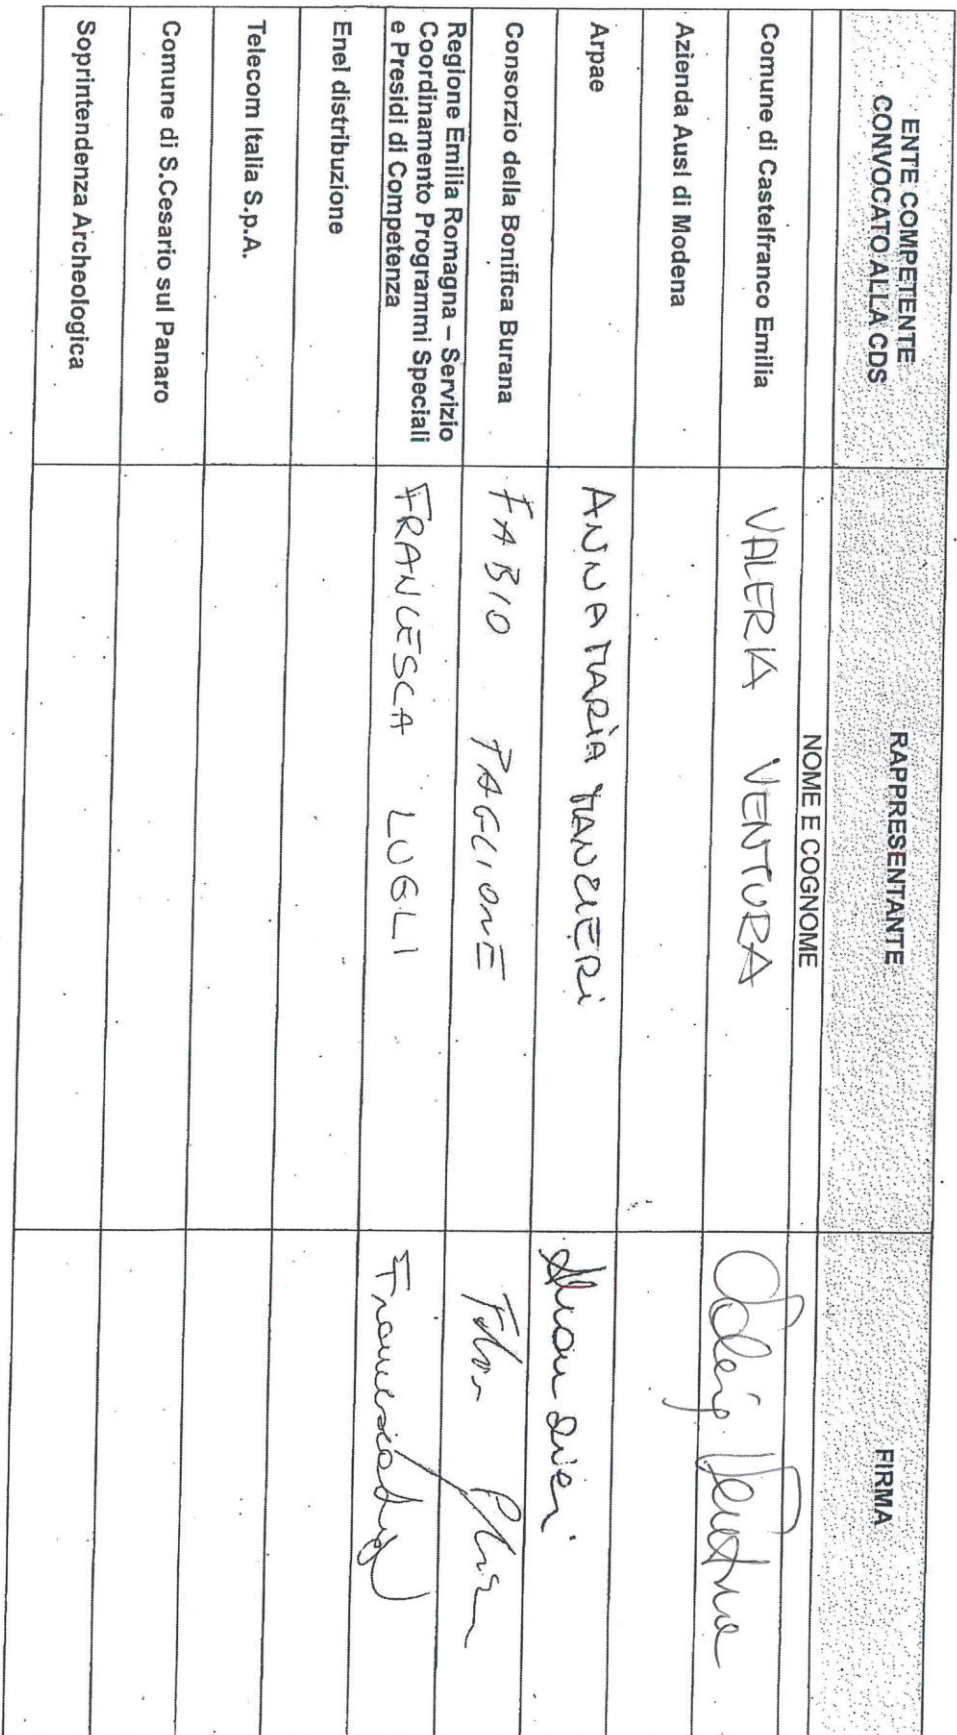 ENTE COMPETENTE
CONVOCATO ALLA CDS
RAPPRESENTANTE
FIRMA
NOME E COGNOME
Comune di Castelfranco Emilia
VALERIA VENTURA
Valeria Ventura
Azienda Ausl di Modena
Arpae
ANNA MARIA MANZIERI
Consorzio della Bonifica Burana
FABIO PAGLIONE
Regione Emilia Romagna – Servizio
Coordinamento Programmi Speciali
e Presidi di Competenza
FRANCESCA LUGLI
Enel distribuzione
Telecom Italia S.p.A.
Comune di S.Cesario sul Panaro
Soprintendenza Archeologica